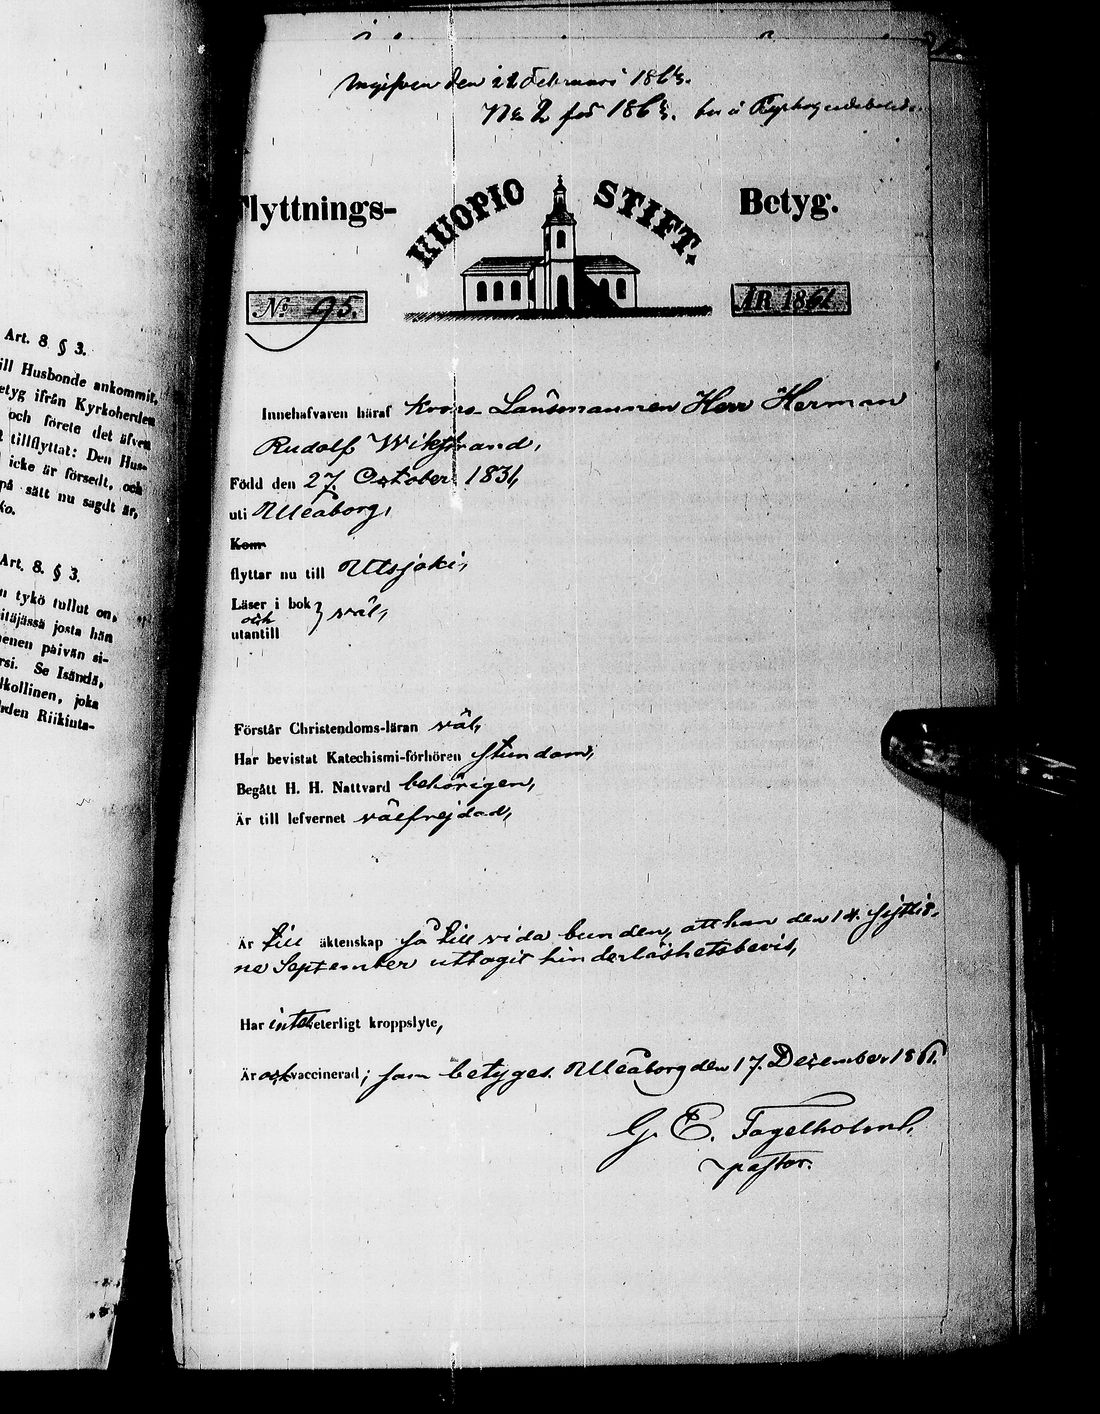 Art. 8 § 3.
ill Husbonde ankommit,
etyg ifrån Kyrkoherden
och förete det äfven
tillflyttat: Den Hus-
icke är försedt, och
på sätt nu sagdt är,
ko.
Art. 8. § 3.
n tykö tullut on,
itäjässä josta hän
menen päivän si-
rsi. Se Isändä,
lkollinen, joka
rden Riikinta-
den 22 Februari
No 2 för
Flyttnings- KUOPIO STIFT. Betyg.
No 95. ÅR 1861
Innehafvaren häraf Krono-Länsmannen Herr Herman
Rudolf Wikstrand,
Född den 27. October 1831,
uti Uleåborg,
Kom
flyttar nu till Utsjoki,
Läser i bok
och } väl,
utantill
Förstår Christendoms-läran väl,
Har bevistat Katechismi-förhören stundom,
Begått H. H. Nattvard behörigen,
Är till lefvernet välfrejdad,
Är till äktenskap så till vida bunden, att han den 14. sistlid-
ne September uttagit hinderlöshetsbevis,
Har intet veterligt kroppslyte,
Är och vaccinerad; som betyges. Uleåborg den 17. December 1861.
G. E. Fagelholm
pastor.